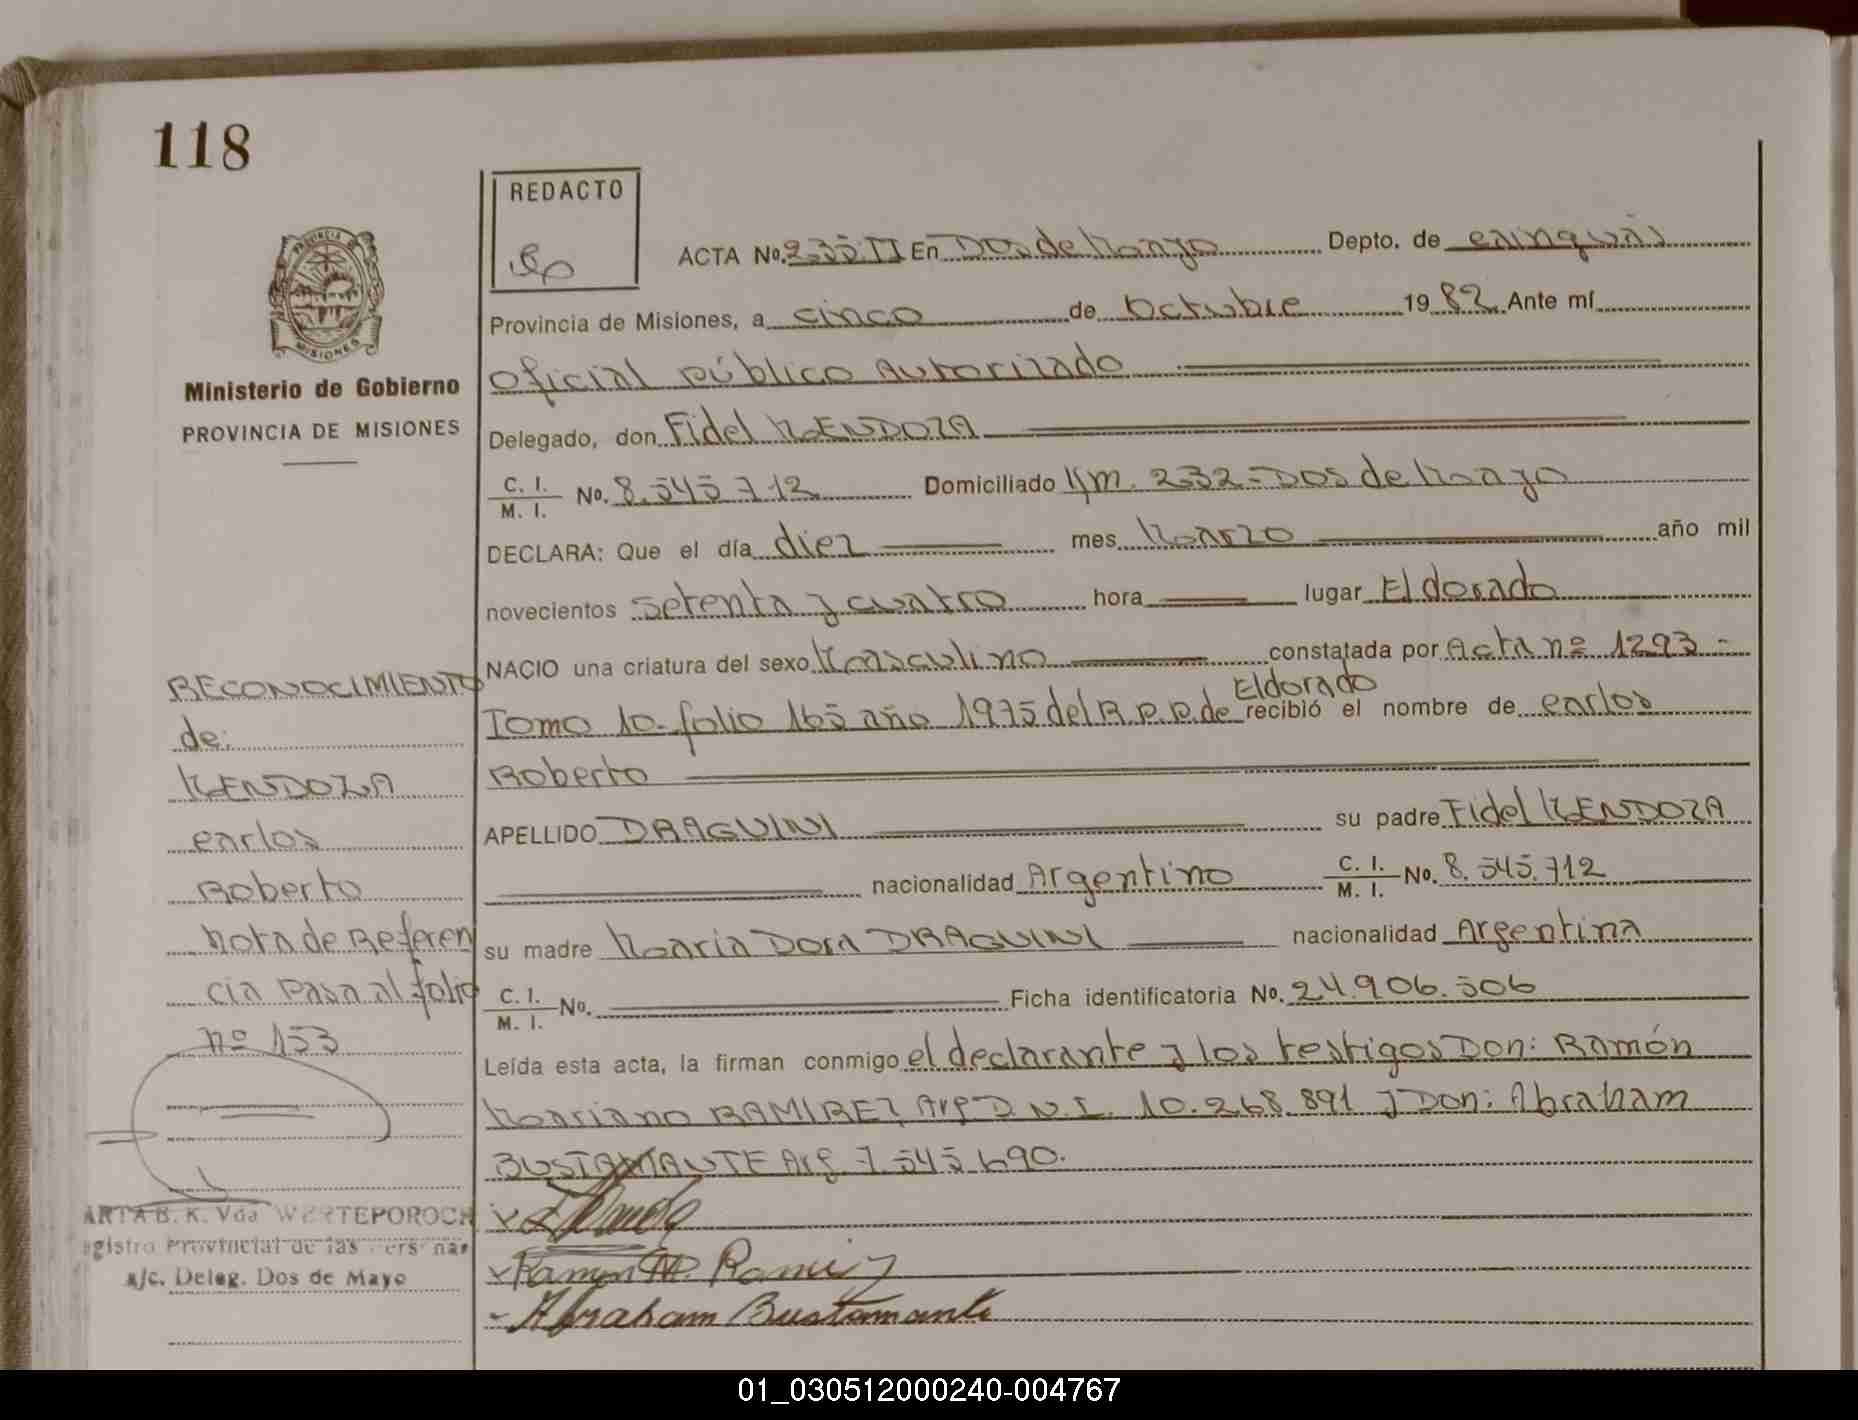 118
REDACTO
ACTA No. 235 II En Dos de Mayo Depto. de Cainguás
Provincia de Misiones, a cinco de Octubre 19 82 Ante mí
Oficial público Autorizado
Delegado, don Fidel MENDOZA
C. I. / M. I. No. 8.545.712 Domiciliado Km. 232 - Dos de Mayo
DECLARA: Que el día diez mes Marzo año mil
novecientos setenta y cuatro hora lugar Eldorado
NACIO una criatura del sexo Masculino constatada por Acta nº 1293 -
Tomo 10 - folio 165 año 1975 del R.P.P. de Eldorado recibió el nombre de Carlos
Roberto
APELLIDO DRAGUINI su padre Fidel MENDOZA
nacionalidad Argentino C. I. / M. I. No. 8.545.712
su madre Maria Dora DRAGUINI nacionalidad Argentina
C. I. / M. I. No. Ficha identificatoria No. 24.906.506
Leída esta acta, la firman conmigo el declarante y los testigos Don: Ramón
Mariano RAMIREZ Arg D.N.I. 10.268.891 y Don: Abraham
BUSTAMANTE Arg. 7.545.690.
Ramon M. Ramirez
Abraham Bustamante
PROVINCIA DE
MISIONES
Ministerio de Gobierno
PROVINCIA DE MISIONES
RECONOCIMIENTO
de:
MENDOZA
Carlos
Roberto
Nota de Referen
cia pasa al folio
nº 153
ARTA B. K. Vda WERTEPOROCH
egistro Provincial de las Personas
a/c. Deleg. Dos de Mayo
01_030512000240-004767